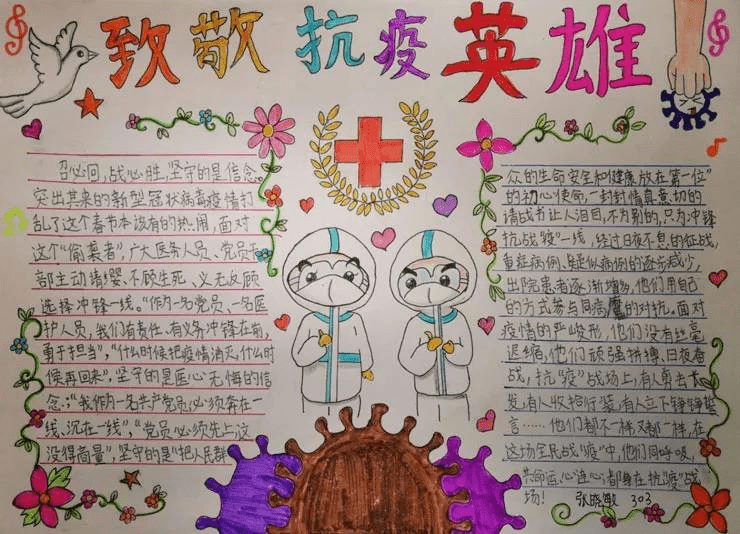 致敬抗疫英雄
召必回,战必胜,坚守的是信念。
突出其来的新型冠状病毒疫情打
乱了这个春节本该有的热闹,面对
这个“偷袭者”,广大医务人员、党员干
部主动请缨、不顾生死、义无反顾
选择冲锋一线。“作为一名党员、一名医
护人员,我们有责任、有义务冲锋在前,
勇于担当”,“什么时候把疫情消灭,什么时
候再回来”,坚守的是医心无悔的信
念;“我作为一名共产党员必须奔在一
线、沉在一线”,“党员必须先上,这
没得商量”,坚守的是“把人民群
众的生命安全和健康放在第一位”
的初心使命,一封封情真意切的
请战书让人泪目,不为别的,只为冲锋
抗战“疫”一线,经过日夜不息的征战,
重症病例、疑似病例的逐步减少,
出院患者逐渐增多,他们用自己
的方式参与同病魔的对抗。面对
疫情的严峻形,他们没有丝毫
退缩,他们顽强拼搏、日夜奋
战,抗“疫”战场上,有人剪去长
发,有人收拾行装,有人立下铮铮誓
言……他们都不一样,又都一样,在
这场全民战“疫”中,他们同呼吸,
共命运,心连心,都身在抗“疫”战
场! 张晓敏 303